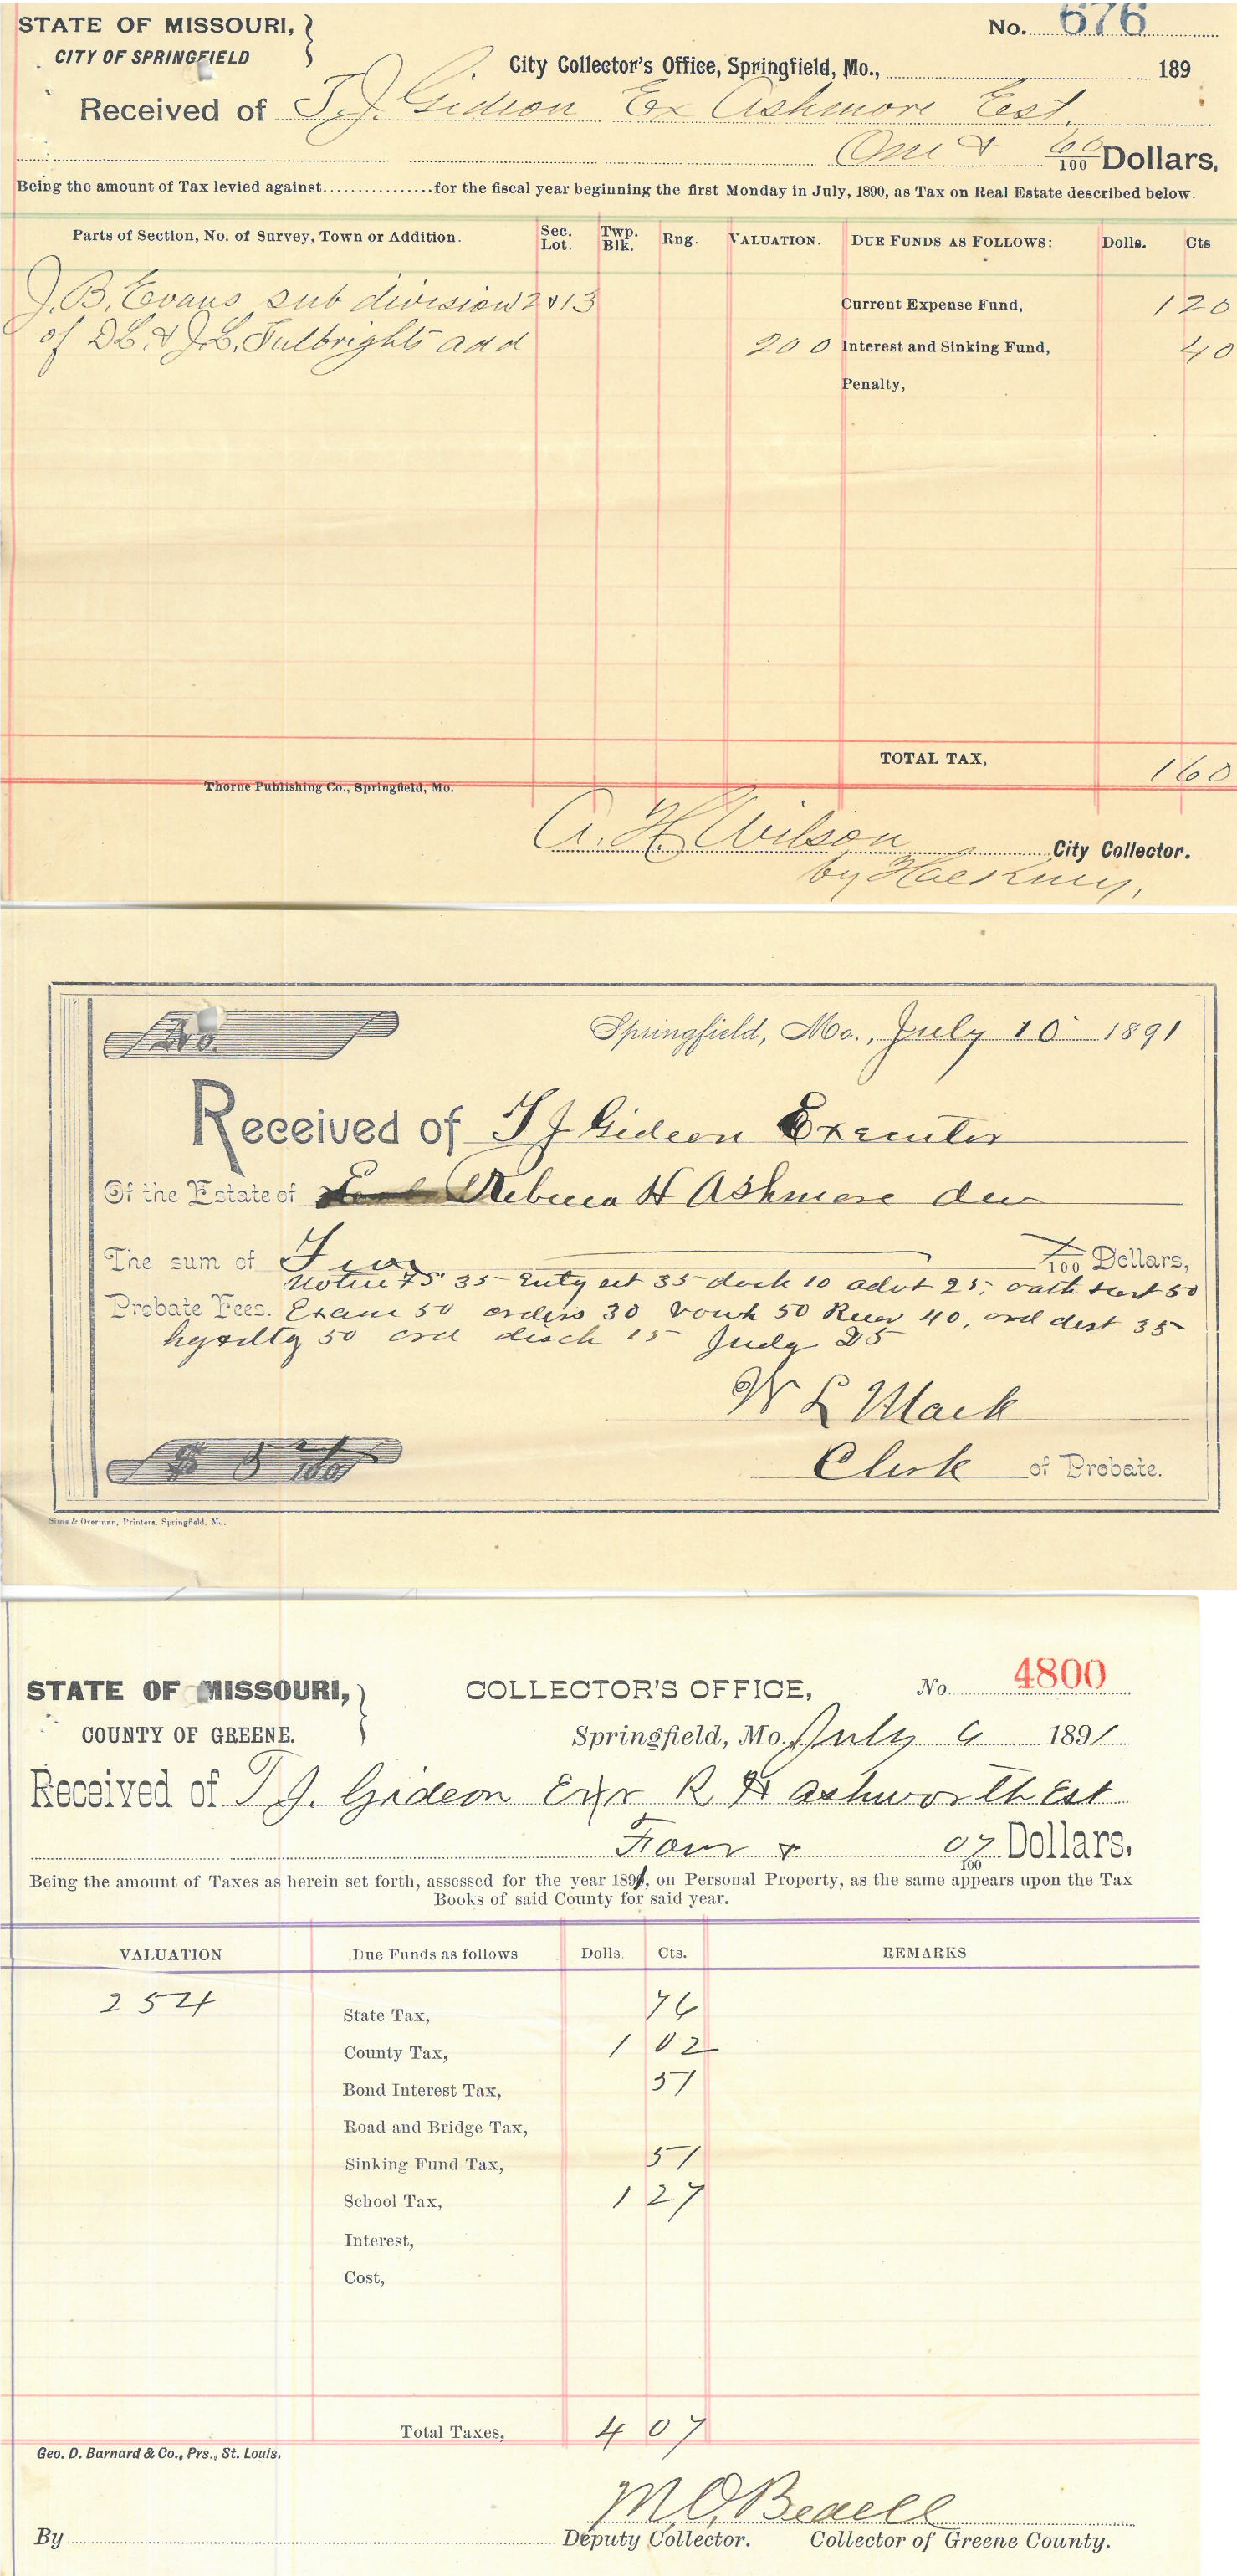 STATE OF MISSOURI,
CITY OF SPRINGFIELD
No. 676
City Collector's Office, Springfield, Mo., 189
Received of T. J. Gideon Ex Ashmore Est.
One & 60/100 Dollars,
Being the amount of Tax levied against for the fiscal year beginning the first Monday in July, 1890, as Tax on Real Estate described below.
Parts of Section, No. of Survey, Town or Addition. Sec. Lot. Twp. Blk. Rng. VALUATION. DUE FUNDS AS FOLLOWS: Dolls. Cts
J. B. Evans sub division 2 & 13 Current Expense Fund, 1 20
of D L. & J. L. Fulbrights add 200 Interest and Sinking Fund, 40
Penalty,
TOTAL TAX, 1 60
Thorne Publishing Co., Springfield, Mo.
A. H. Wilson City Collector.
by Hackney,
No.
Springfield, Mo., July 10 1891
Received of T J Gideon Executor
Of the Estate of Rebecca H Ashmore
The sum of /100 Dollars,
35 35 dock 10 advt 25, 50
Probate Fees. Exam 50 orders 30 vouch 50 40, ord dist 35
50 ord disch 15 Judg 25
W L Mack
$ 5 /100
Clerk of Probate.
Sims & Overman, Printers, Springfield, Mo.
STATE OF MISSOURI,
COUNTY OF GREENE.
COLLECTOR'S OFFICE,
No. 4800
Springfield, Mo. July 6 1891
Received of T J. Gideon Exr R H Ashworth Est
Four & 07/100 Dollars.
Being the amount of Taxes as herein set forth, assessed for the year 1891, on Personal Property, as the same appears upon the Tax
Books of said County for said year.
VALUATION Due Funds as follows Dolls. Cts. REMARKS
254 State Tax, 76
County Tax, 1 02
Bond Interest Tax, 51
Road and Bridge Tax,
Sinking Fund Tax, 51
School Tax, 1 27
Interest,
Cost,
Total Taxes, 4 07
Geo. D. Barnard & Co., Prs., St. Louis.
M. O. Bedell
By Deputy Collector. Collector of Greene County.